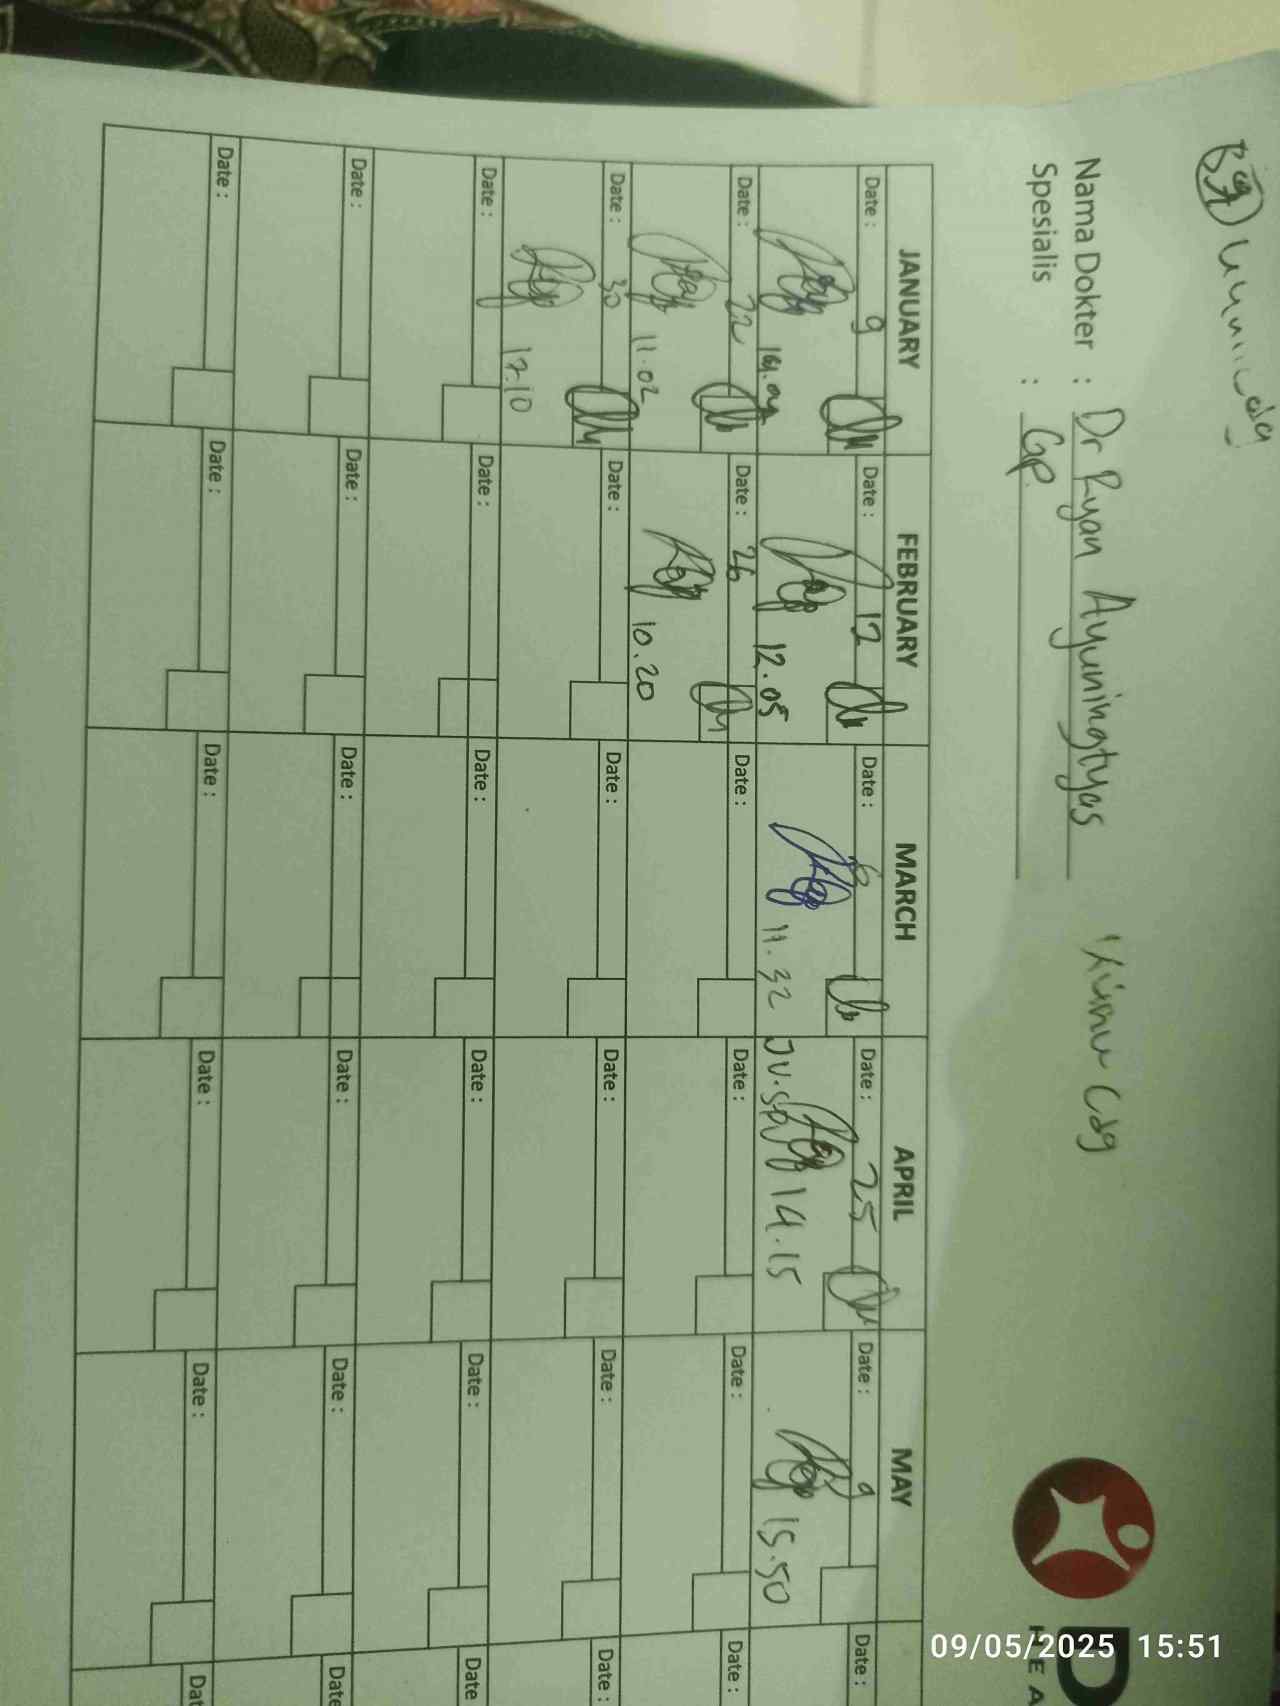 Nama Dokter : Dr Ryan Ayuningtyas
Spesialis : GP.
JANUARY FEBRUARY MARCH APRIL MAY
Date : 9 Date : 12 Date : 6 Date : 25 Date : 9 Date :
12.05 11.32 JV.SPV 14.15 15.50
Date : 22 Date : 26 Date : Date : Date : Date :
11.02 10.20
Date : 30 Date : Date : Date : Date : Date :
17.10
Date : Date : Date : Date : Date : Date
Date : Date : Date : Date : Date : Date
Date : Date : Date : Date : Date : Dat
D
HEA
09/05/2025 15:51